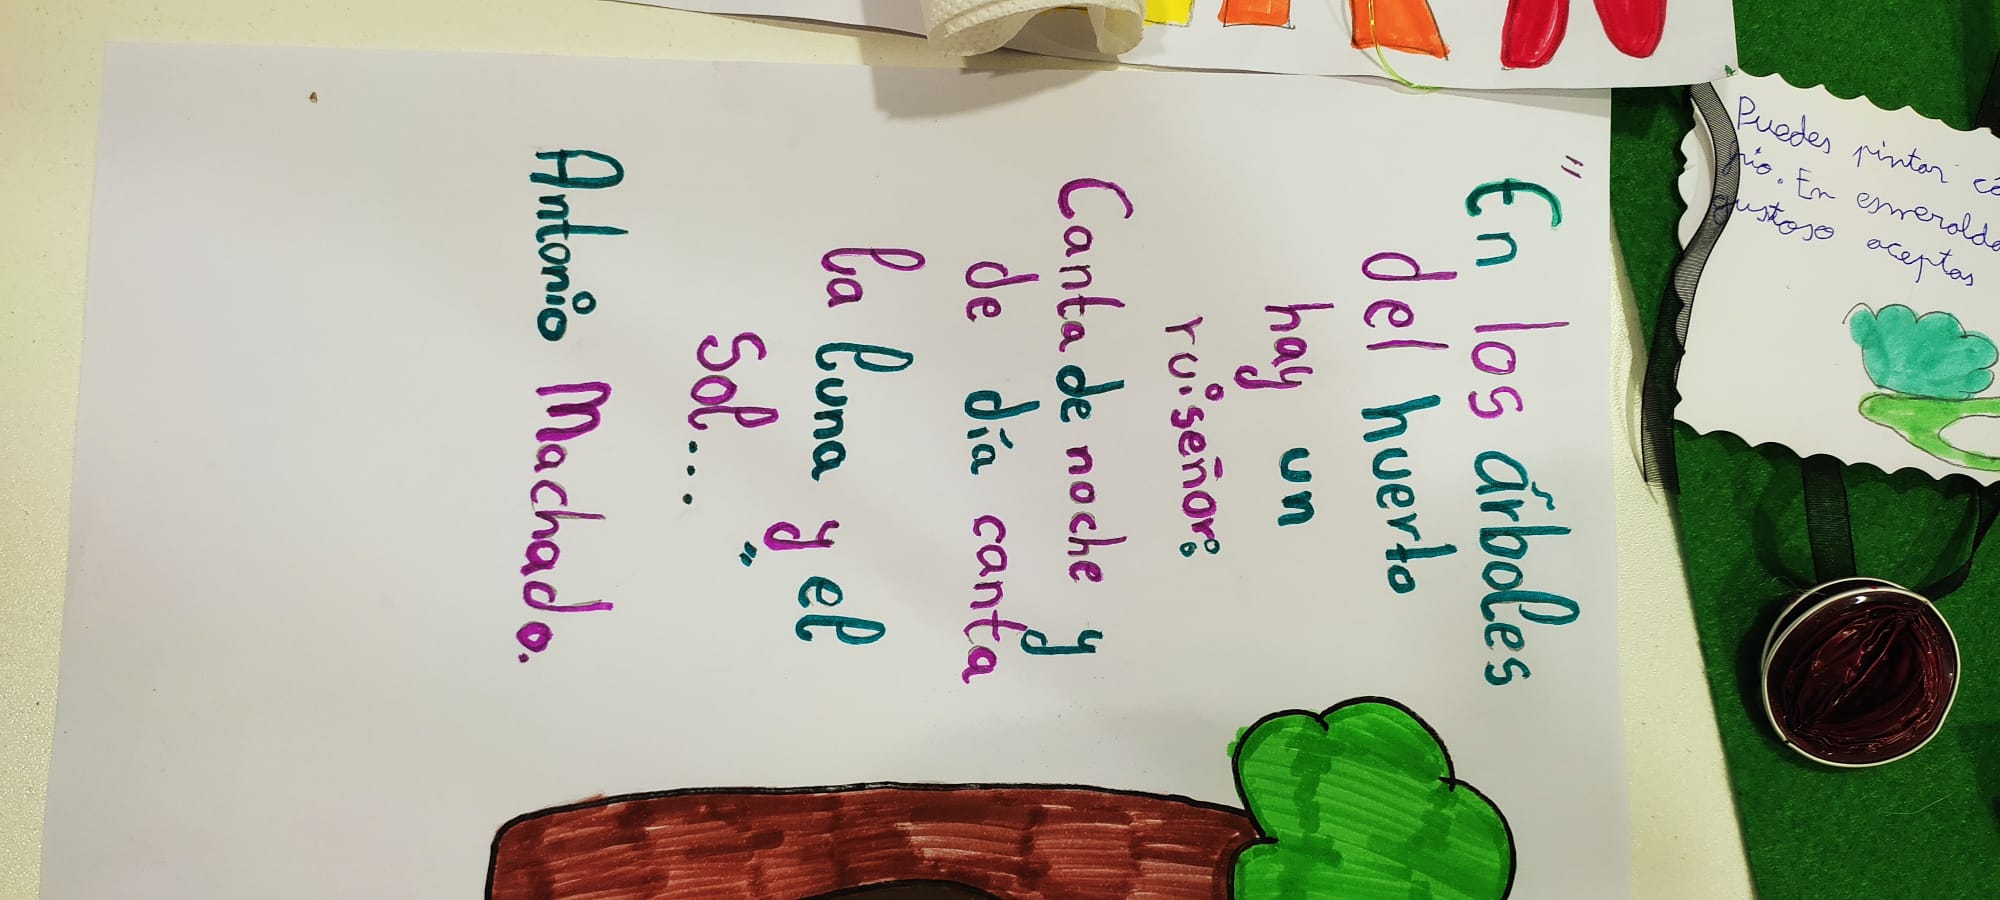 "En los árboles
del huerto
hay un
ruiseñor:
Canta de noche y
de día canta
la luna y el
Sol..."
Antonio Machado.
Puedes pintar
rio. En esmeralda
gustoso aceptas